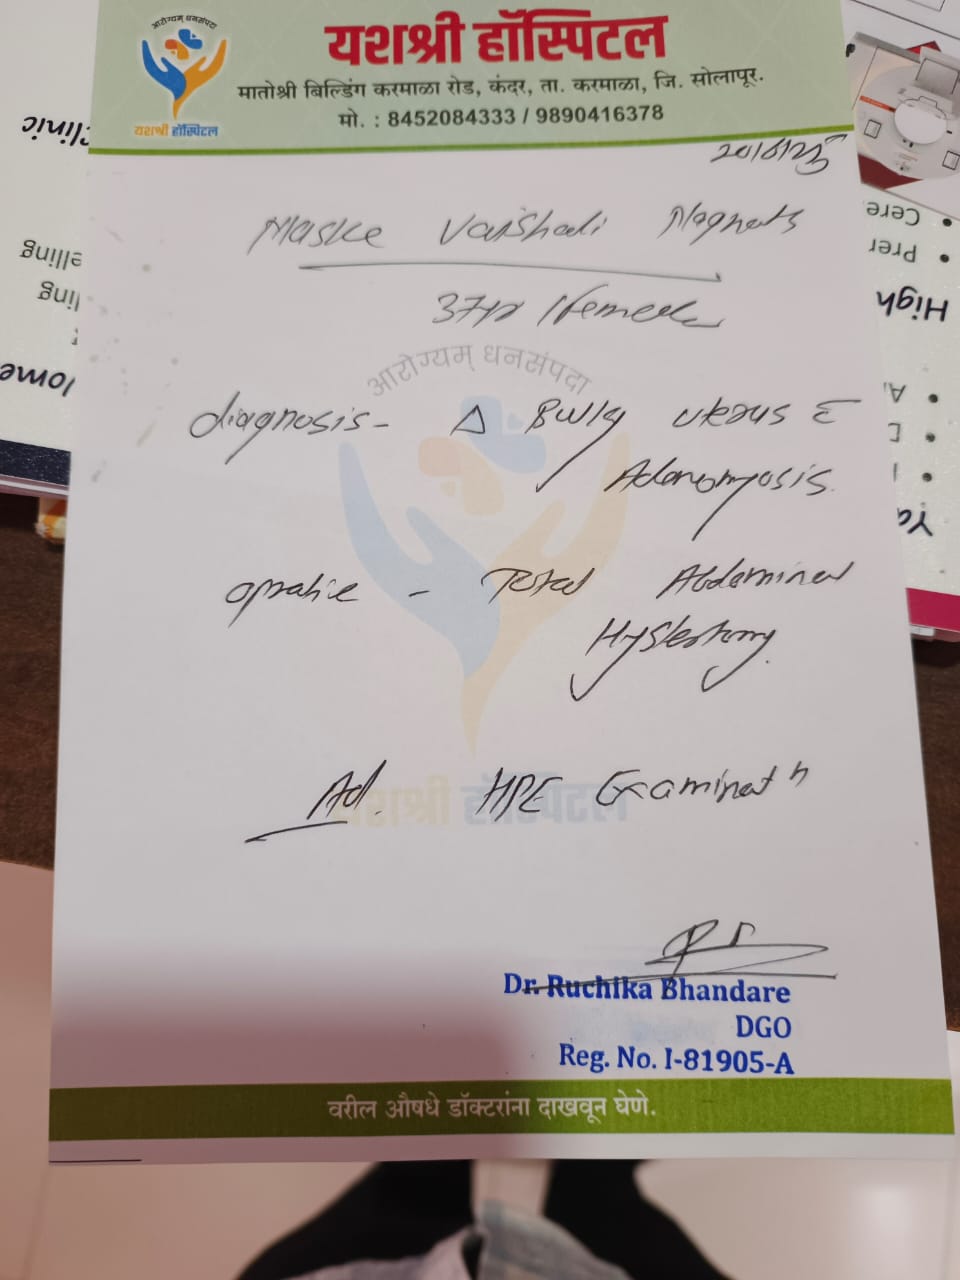 आरोग्यम् धनसंपदा
यशश्री हॉस्पिटल
यशश्री हॉस्पिटल
मातोश्री बिल्डिंग करमाळा रोड, कंदर, ता. करमाळा, जि. सोलापूर.
मो. : 8452084333 / 9890416378
Maske Vaishali
37yr / Female
आरोग्यम् धनसंपदा
diagnosis - Δ Bulky uterus c̅
Adenomyosis.
Total Abdominal
Ad. HPE Examinatn
यशश्री हॉस्पिटल
Dr. Ruchika Bhandare
DGO
Reg. No. I-81905-A
वरील औषधे डॉक्टरांना दाखवून घेणे.
clinic
elling
ling
Home
Cere
Prer
High
Ya